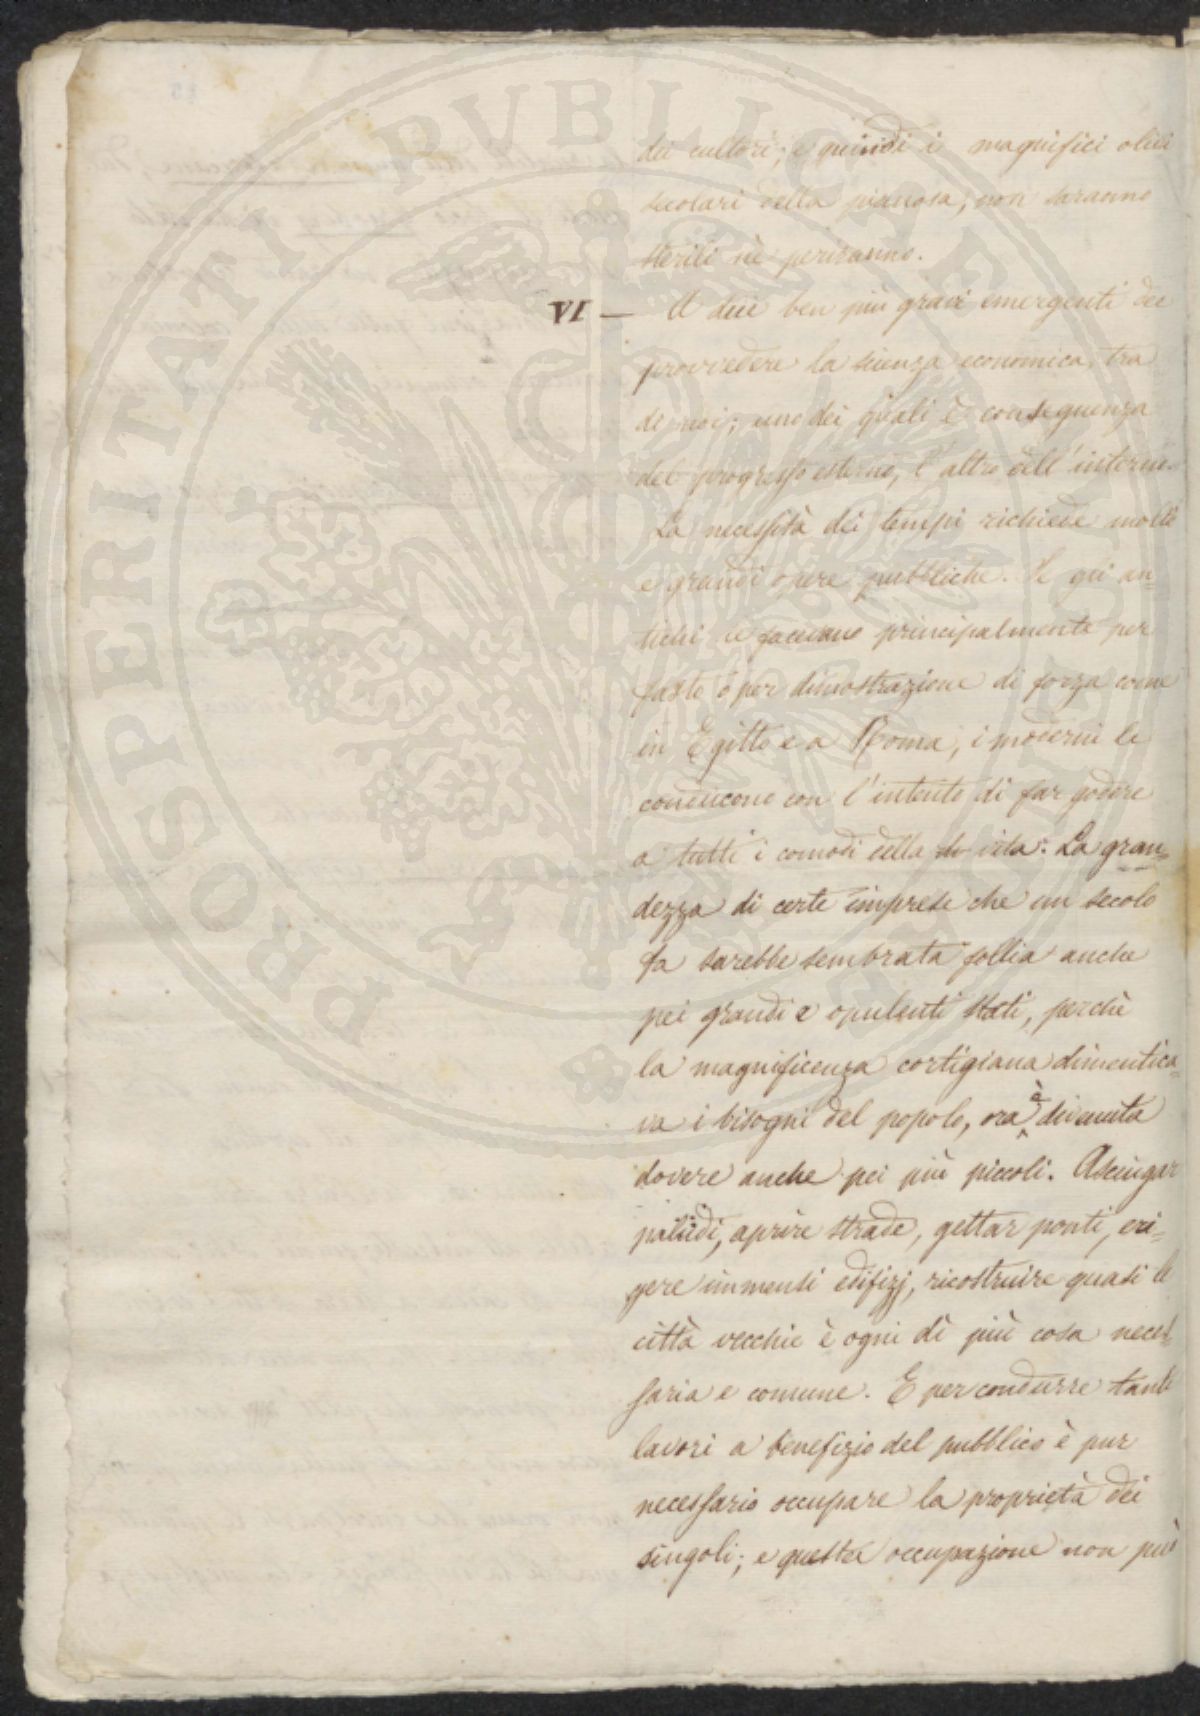 PROSPERITATI PVBLICAE
dei cultori; e quindi i magnifici olivi
secolari della pianosa, non saranno
sterili nè periranno.
VI — A due ben più gravi emergenti dee
provvedere la scienza economica, tra
di noi; uno dei quali è conseguenza
del progresso esterno, l'altro dell'interno.
La necessità dei tempi richiede molte
e grandi opere pubbliche. Se gli an=
tichi le facevano principalmente per
fasto o per dimostrazione di forza come
in Egitto e a Roma, i moderni le
conducono con l'intento di far godere
a tutti i comodi della vita. La gran=
dezza di certe imprese che un secolo
fa sarebbe sembrata follia anche
pei grandi e opulenti stati, perchè
la magnificenza cortigiana dimentica=
va i bisogni del popolo, ora è divenuta
dovere anche pei più piccoli. Asciugar
paludi, aprire strade, gettar ponti, eri=
gere immensi edifizj, ricostruire quasi le
città vecchie è ogni dì più cosa neces=
saria e comune. E per condurre tanti
lavori a benefizio del pubblico è pur
necessario occupare la proprietà dei
singoli; e questa occupazione non può